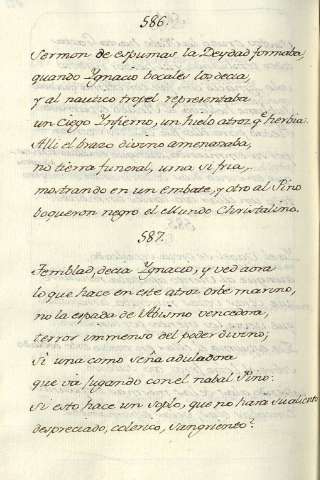 586.
Sermon de espumas la Deydad formaba,
quando Ygnacio bocales los decia,
y al nautico tropel representaba
un Ciego Ynfierno, un hielo atroz q.e herbia:
Alli el brazo divino amenazaba,
no tierra funeral, urna si fria,
mostrando en un Embate, y otro al Pino
boqueron negro el Mundo Christalino.
587.
Temblad, decia Ygnacio, y ved aora
lo que hace en este atroz orbe marino,
no la espada de Abismo vencedora,
terror immenso del poder divino;
si una como seña aduladora
que va jugando con el nabal Pino:
Si esto hace un soplo, que no hará su aliento
despreciado, colerico, sangriento?